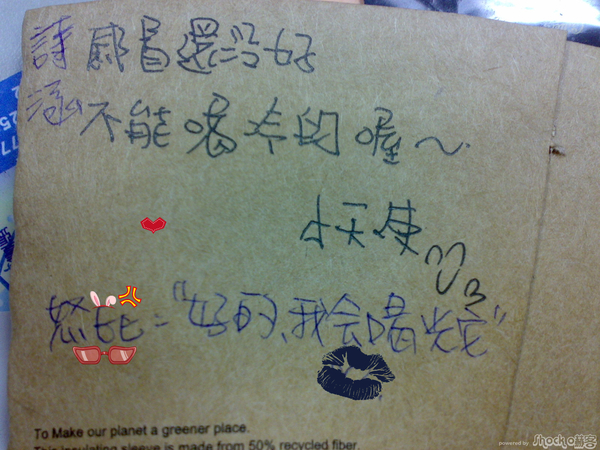 詩涵
感冒還沒好
不能喝冷的喔～
小天使
"好的、我会喝光它"
To Make our planet a greener place.
This insulating sleeve is made from 50% recycled fiber.
powered by
77
25